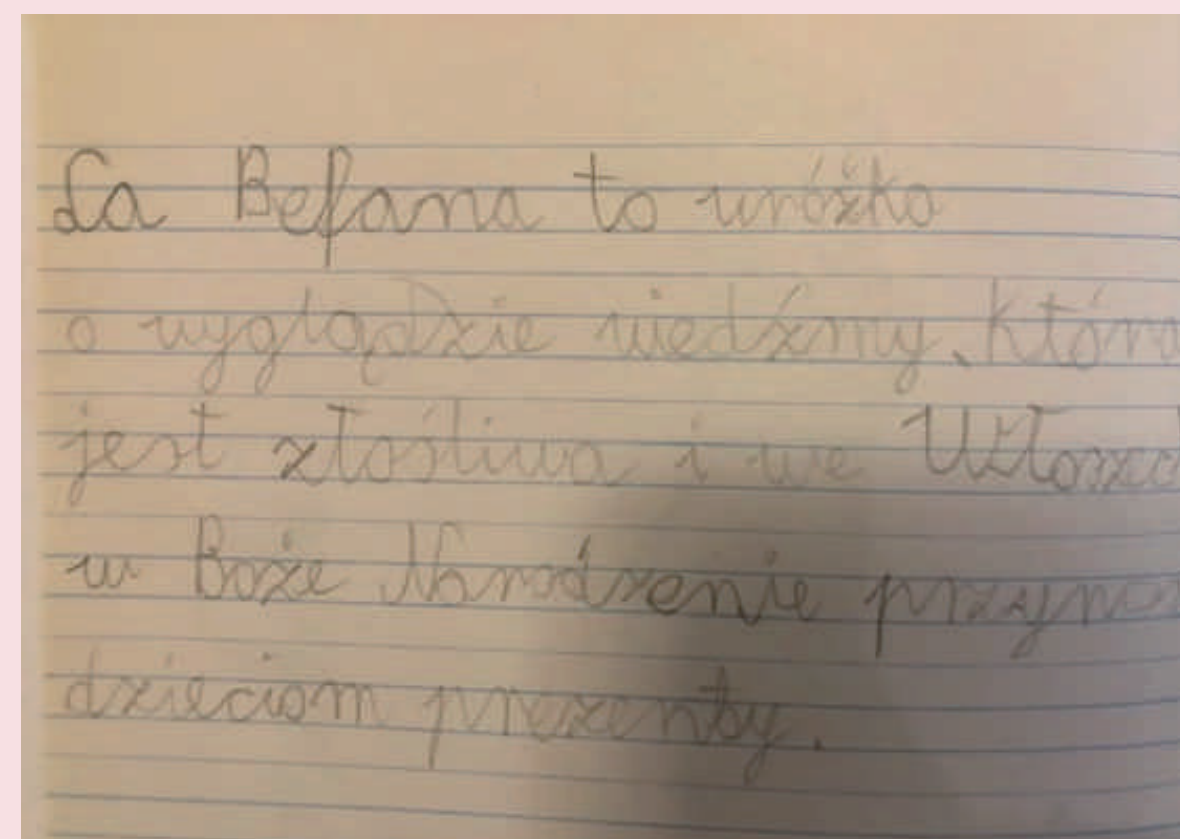 La Befana to wróżka
o wyglądzie wiedźmy, która
jest złośliwa i we Włoszech
w Boże Narodzenie
dzieciom prezenty.